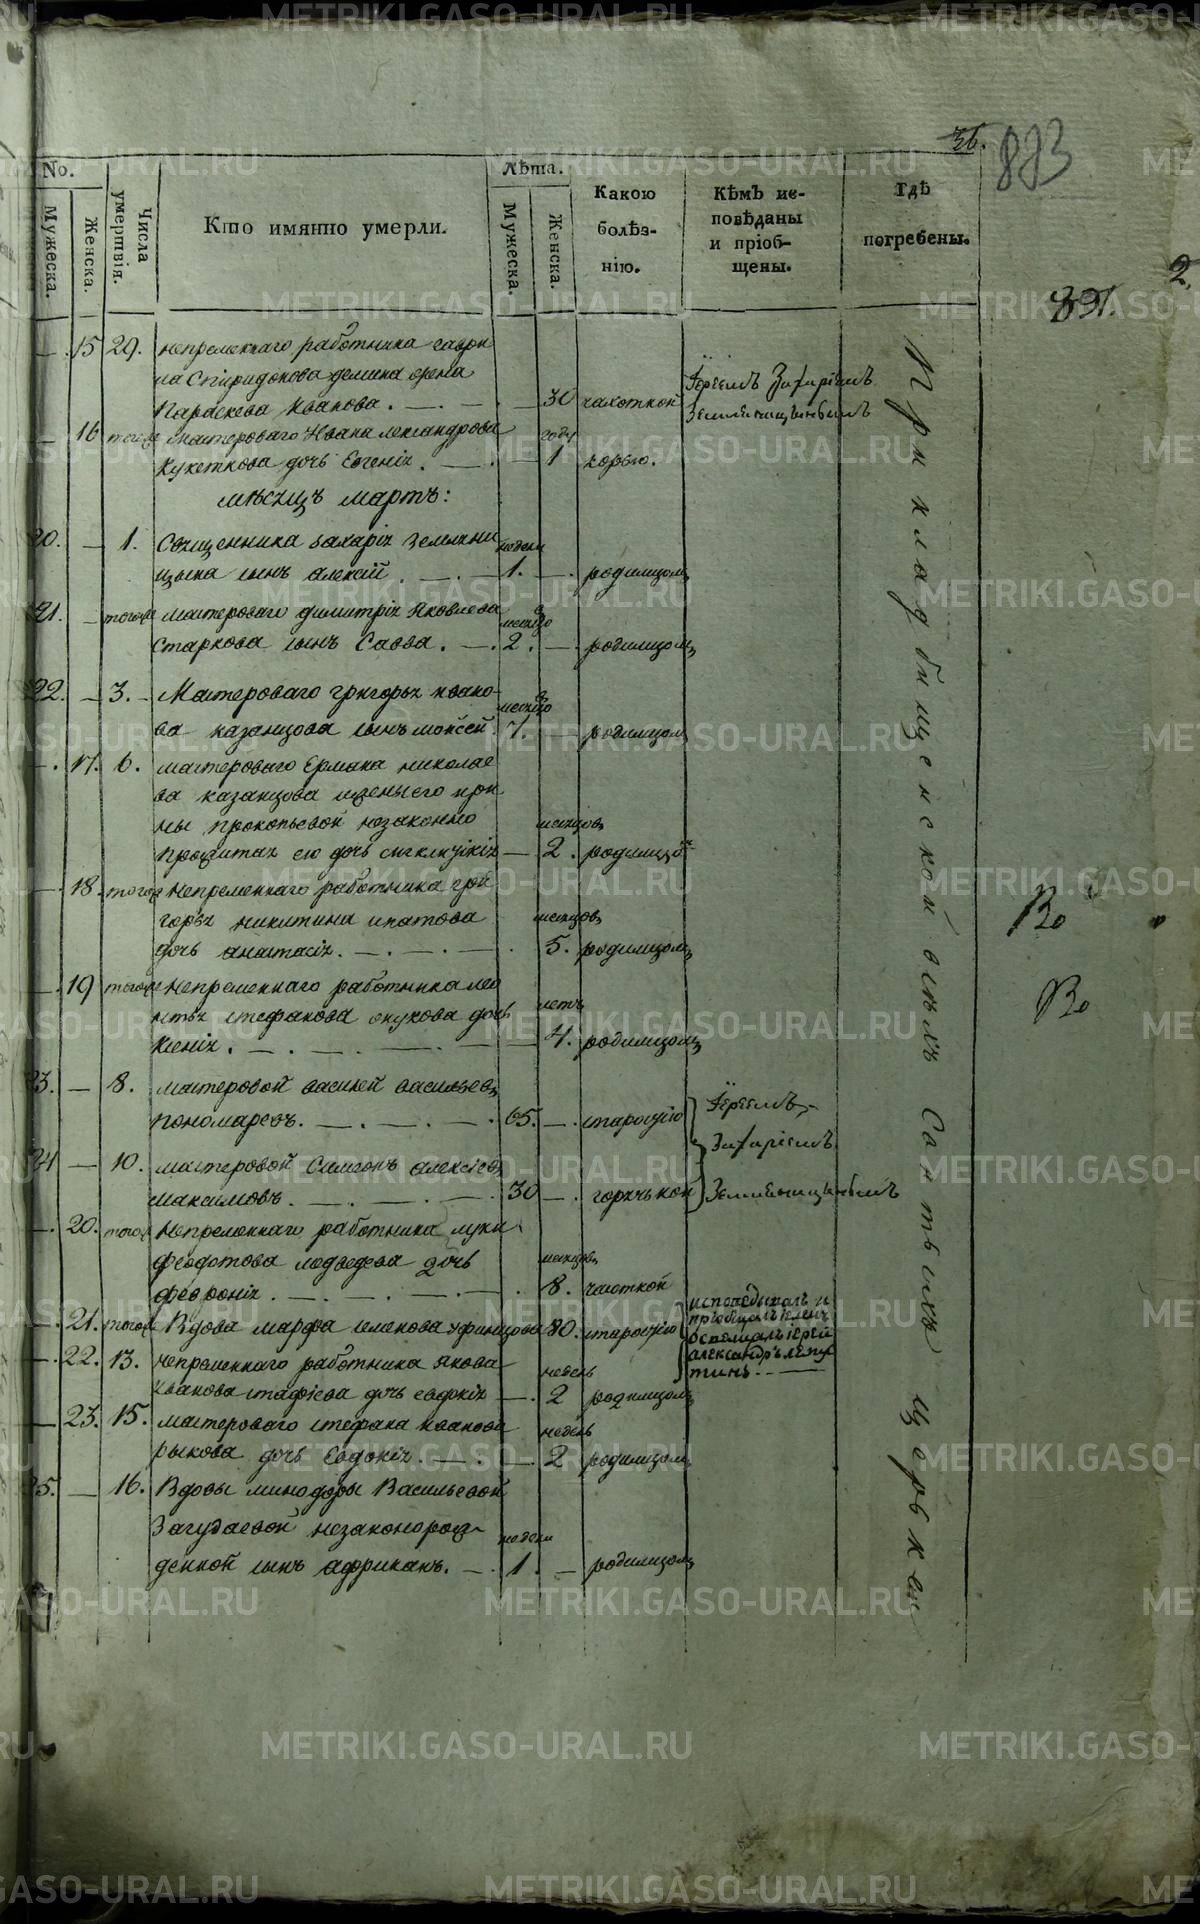 36.
883
891.
2.
No.
Мужеска.
Женска.
Числа умертвія.
Кто имянно умерли.
Лѣта.
Мужеска.
Женска.
Какою болѣз-нію.
Кѣмъ ис-повѣданы и пріоб-щены.
Гдѣ погребены.
— 15 29. непременнаго работника гаври
ла Спиридонова демина жена
Параскева Иванова. — 30 чахоткой
Іереемъ Захаріемъ
Земляницынымъ
— 16 тогоже мастероваго Ивана Александрова году
Кукеткова дочь Евгенія. — 1 корью.
мѣсяцъ мартъ:
20. — 1. Священника захарія земляни недели
цына сынъ алексій. — 1. — родимцомъ
21. — тогоже мастероваго димитрія Яковлева
Старкова сынъ Савва. — 2. — родимцомъ
22. — 3. Мастероваго григорья ивано-
ва казанцова сынъ моисей. 7. — родимцом
— 17. 6. мастероваго Ермака николае
ва казанцова и жены его ири
ны прокопьевой незаконно месяцовъ
прижитая ею дочь — 2. родимцомъ
— 18. тогоже непременнаго работника гри
горья никитина ипатова месяцовъ
дочь анастасія. — 5. родимцомъ
— 19 тогоже непременнаго работника лео
нтья стефанова окухова дочь летъ
Ксенія. — 4. родимцомъ
23. — 8. мастеровой василей васильевъ
пономаревъ. — 65. — старостію
Іереемъ
Захаріемъ
24 — 10. мастеровой Симеонъ алексіевъ
максимовъ. — 30 — горячькой
Земляницынымъ
— 20. тогоже непременнаго работника луки
феодотова медведева дочь месяцовъ
февронія. — 8. чаюткой
— 21. тогоже Вдова марфа семенова уфинцова 80. старостію
исповедывалъ и
пріобщалъ
іерей
александръ лепу
тинъ. —
— 22. 13. непременнаго работника якова недель
иванова стафіева дочь евдокія — 2 родимцомъ
— 23. 15. мастероваго стефана иванова недель
рыкова дочь Евдокія. — 2 родимцомъ
25. — 16. Вдовы минодоры Васильевой
Загудаевой незаконорож- недели
денной сынъ африканъ. — 1. — родимцомъ
При кладбищенской всемъ Святыхъ церквеи
Во
Во
METRIKI.GASO-URAL.RU